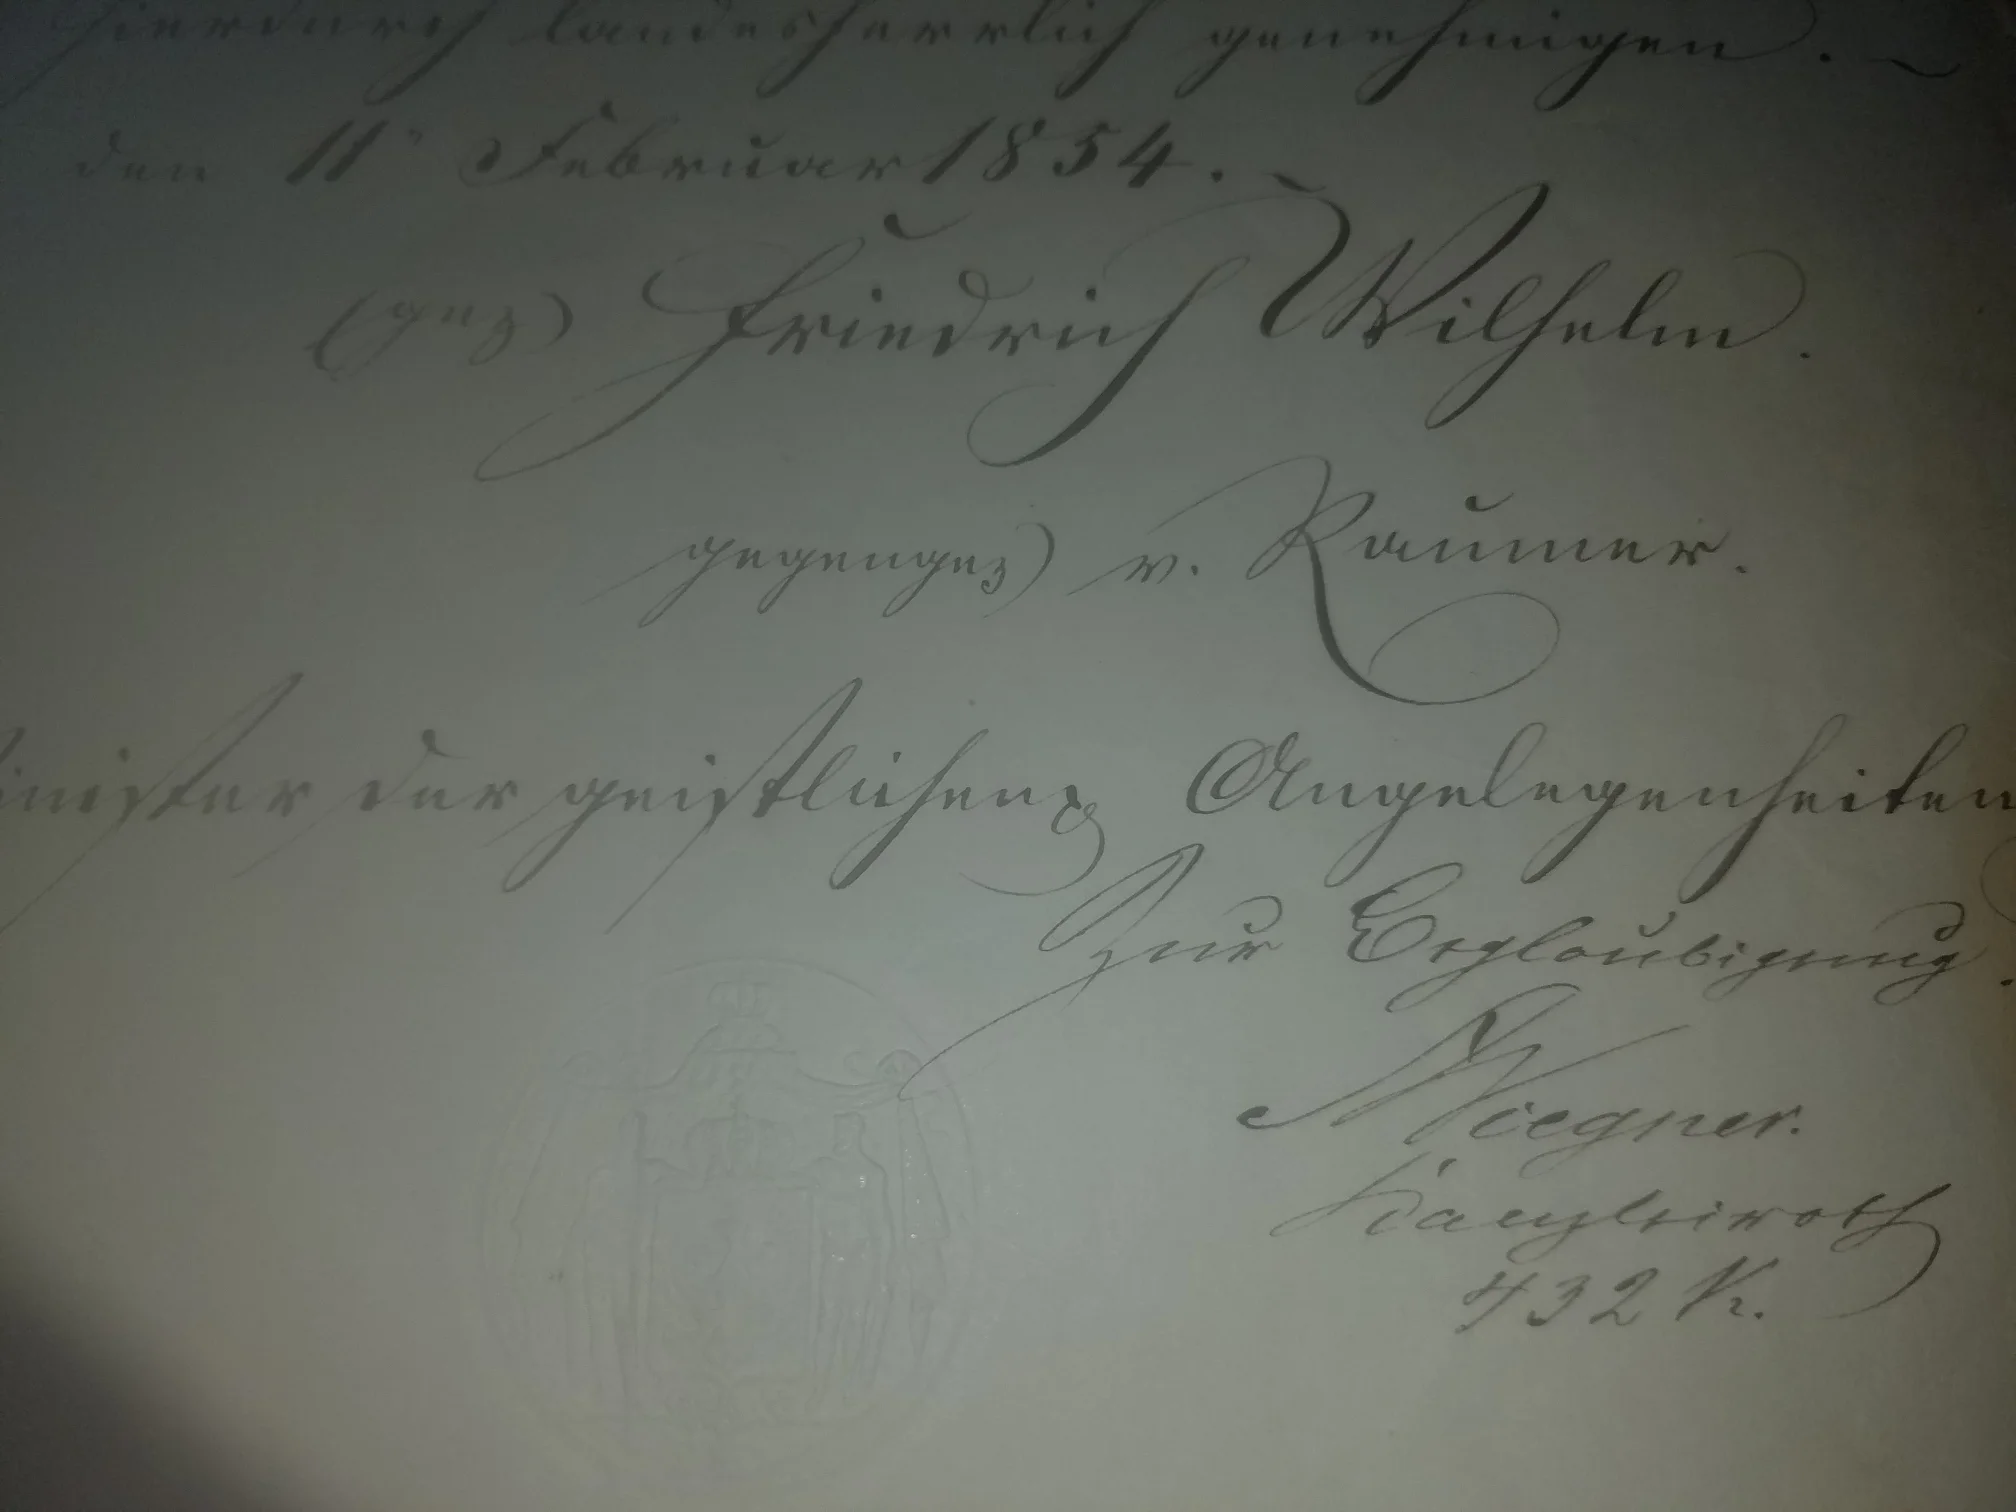 hierdurch landesherrlich genehmigen.
den 11 Februar 1854.
(gez) Friedrich Wilhelm.
gegengez) v. Raumer.
inister der geistlichen Angelegenheiten
Zur Beglaubigung.
Wiegner.
Kanzleirath
432 K.